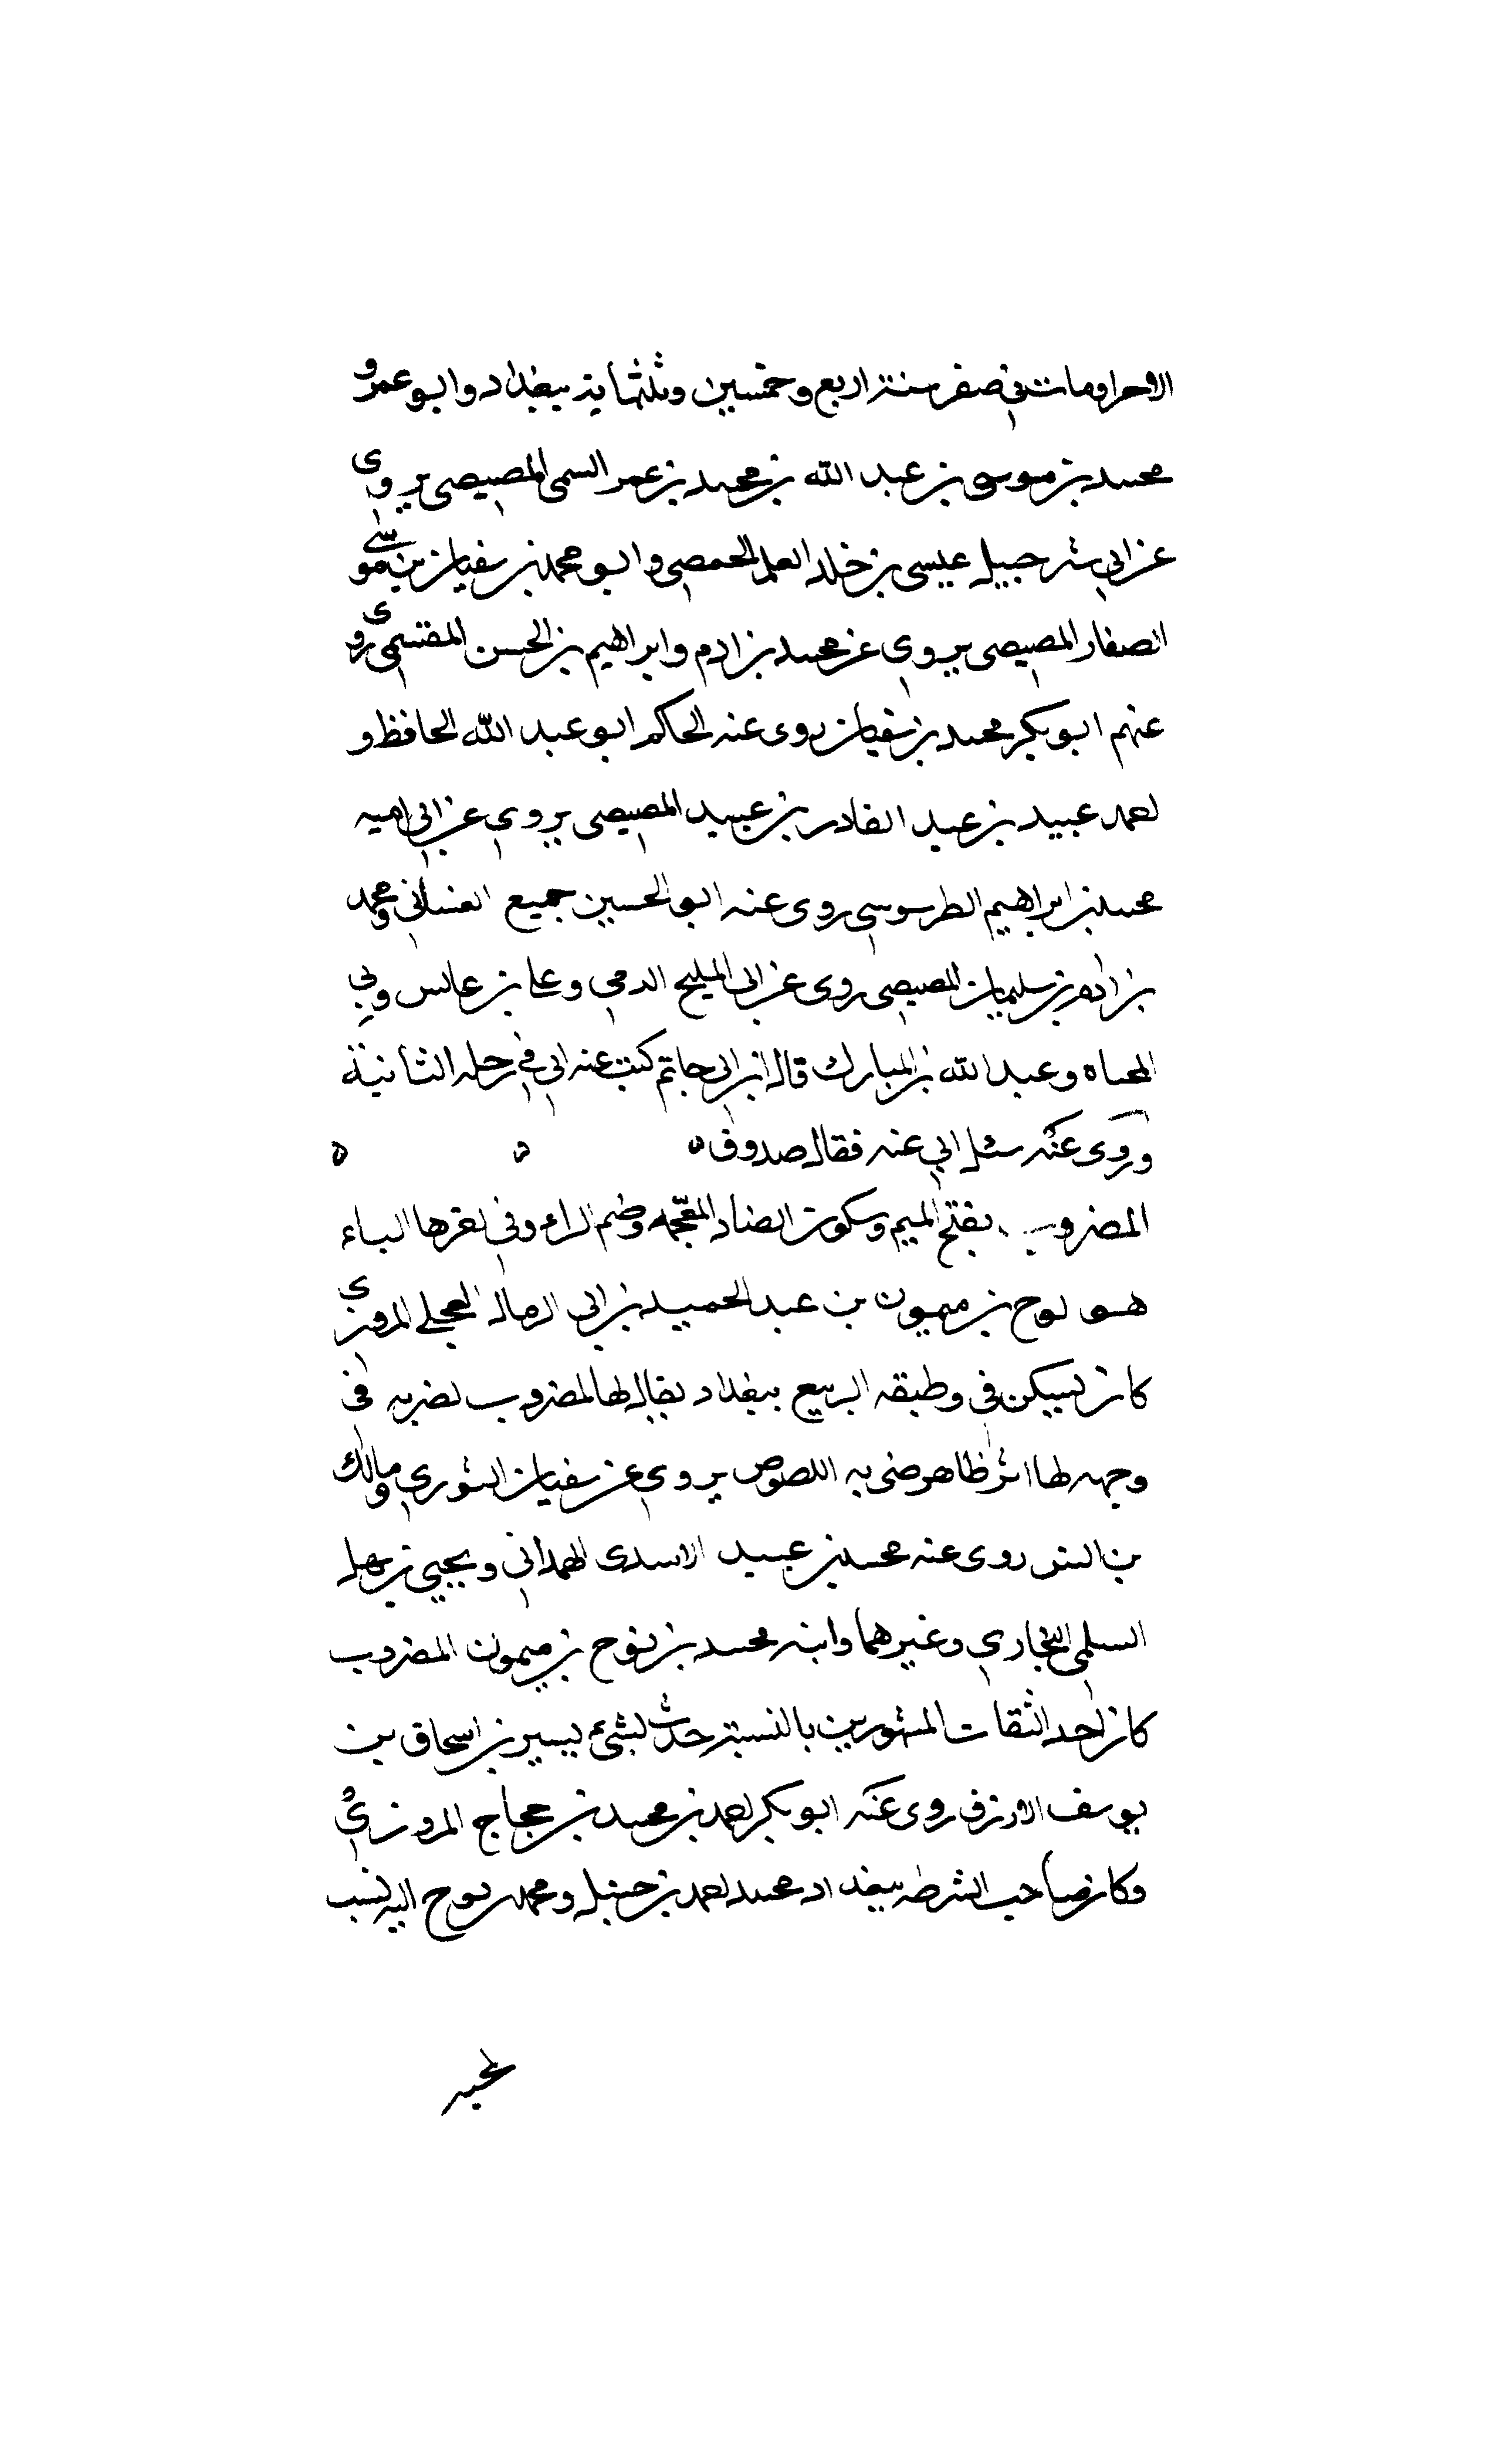 الاحرا ومات في صفر سنة اربع وخمسين وثلثماية ببغداد وابو عمرو
محمد بن موسى بن عبد الله بن محمد بن عمر السمى المصيصى يروى
عن ابي شرحبيل عيسى بن خلد الحمصى وابو محمد بن سفيان بن موسى
الصفار المصيصى يروى عن محمد بن ادم وابراهيم بن الحسن المقسمى روى
عنهم ابو بكر محمد بن سفيان روى عنه الحاكم ابو عبد الله الحافظ و
احمد عبيد بن عبد القادر بن عبيد المصيصى يروى عن ابى اميه
محمد بن ابراهيم الطرسوسى روى عنه ابو الحسين جميع الغسانى ومحمد
بن ادم بن سليمان المصيصى روى عن ابى المليح الرمى وعلى بن عابس وابى
المحياه وعبد الله بن المبارك قال ابن ابى حاتم كتب عنه ابى فى رحله الثانية
وروى عنه سئل ابى عنه فقال صدوق ه ه ه
المضروب بفتح الميم وسكون الضاد المعجمه وضم الراء وفى اخرها الباء
هو نوح بن ميمون بن عبد الحميد بن ابى الرجال العجلى المروزى
كان يسكن فى وطبقه الربيع ببغداد يقال لها المضروب لضربه فى
وجهه لها اثر ظاهر ضربه اللصوص يروى عن سفيان الثورى ومالك
بن انس روى عنه محمد بن عبيد الاسدى الهمدانى ويحيى بن سهل
السلمى البخارى وغيرهما وابنه محمد بن نوح بن ميمون المضروب
كان احد الثقات المشهورين بالنسبة حدث بشىء يسير بن اسحاق بن
يوسف الازرق روى عنه ابو بكر احمد بن محمد بن حجاج المروزى
وكان صاحب الشرطه ببغداد محمد احمد بن حنبل ومحمد نوح اليه نسب